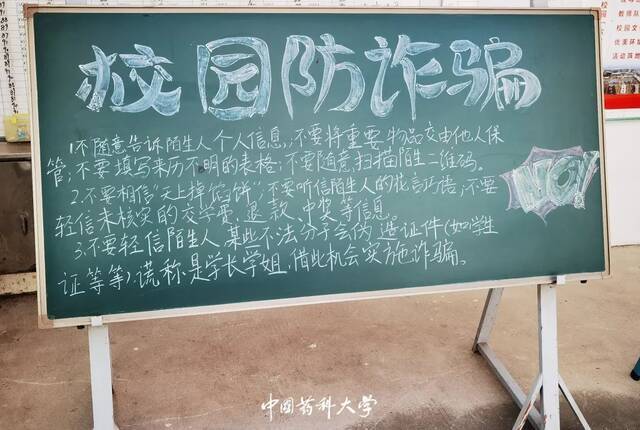 校园防诈骗
1.不随意告诉陌生人个人信息,不要将重要物品交由他人保
管;不要填写来历不明的表格;不要随意扫描陌生二维码。
2.不要相信“天上掉馅饼”,不要听信陌生人的花言巧语;不要
轻信未核实的交学费、退款、中奖等信息。
3.不要轻信陌生人,某些不法分子会伪造证件(如学生
证等等),谎称是学长学姐,借此机会实施诈骗。
NO!
中国药科大学